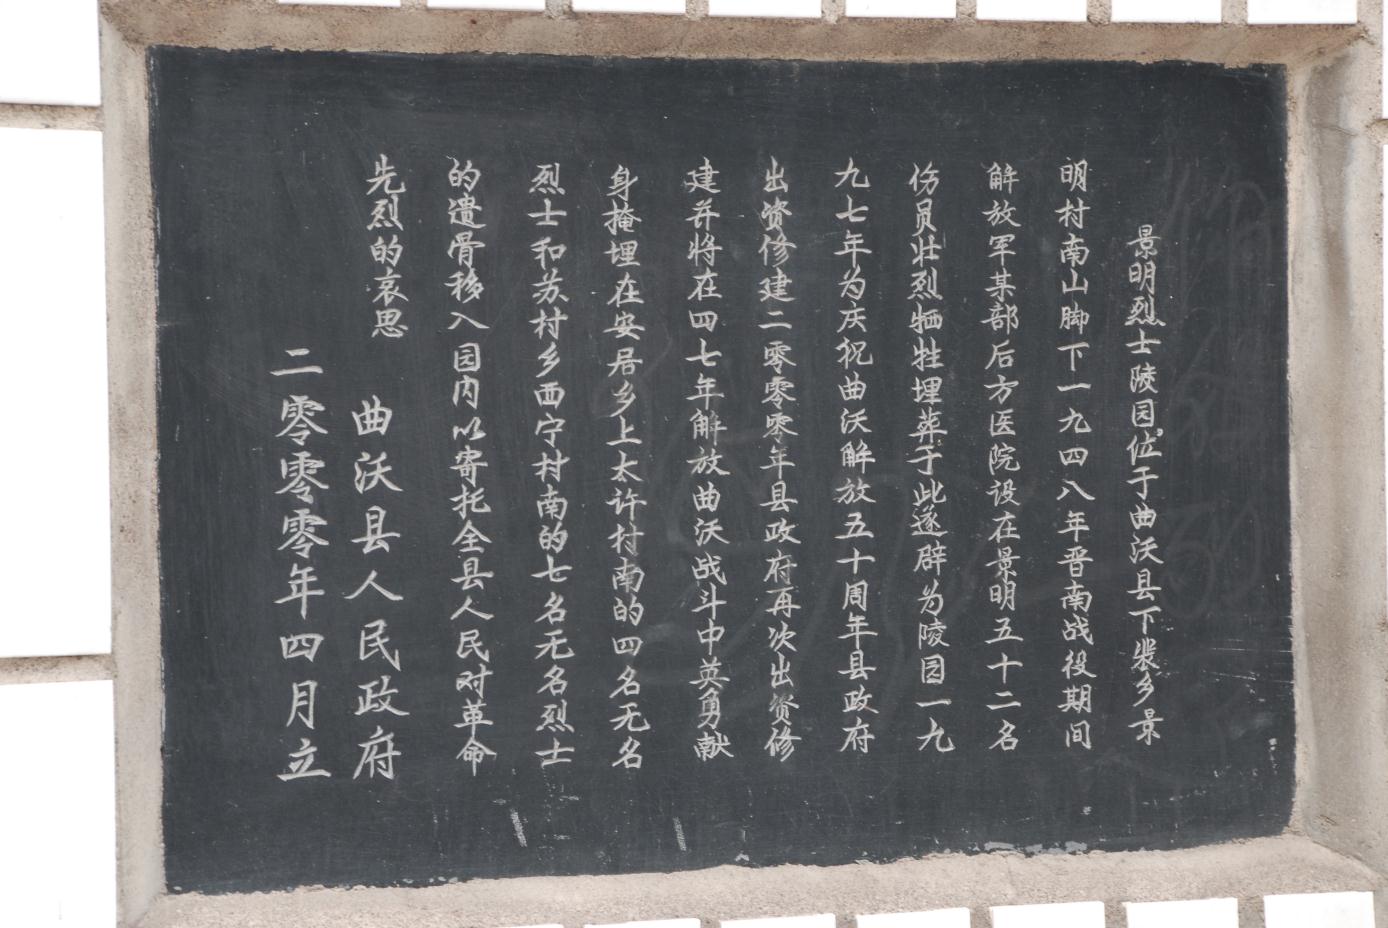 景明烈士陵园位于曲沃县下裴乡景
明村南山脚下一九四八年晋南战役期间
解放军某部后方医院设在景明五十二名
伤员壮烈牺牲埋葬于此遂辟为陵园一九
九七年为庆祝曲沃解放五十周年县政府
出资修建二零零零年县政府再次出资修
建并将在四七年解放曲沃战斗中英勇献
身掩埋在安居乡上太许村南的四名无名
烈士和苏村乡西宁村南的七名无名烈士
的遗骨移入园内以寄托全县人民对革命
先烈的哀思
曲沃县人民政府
二零零零年四月立